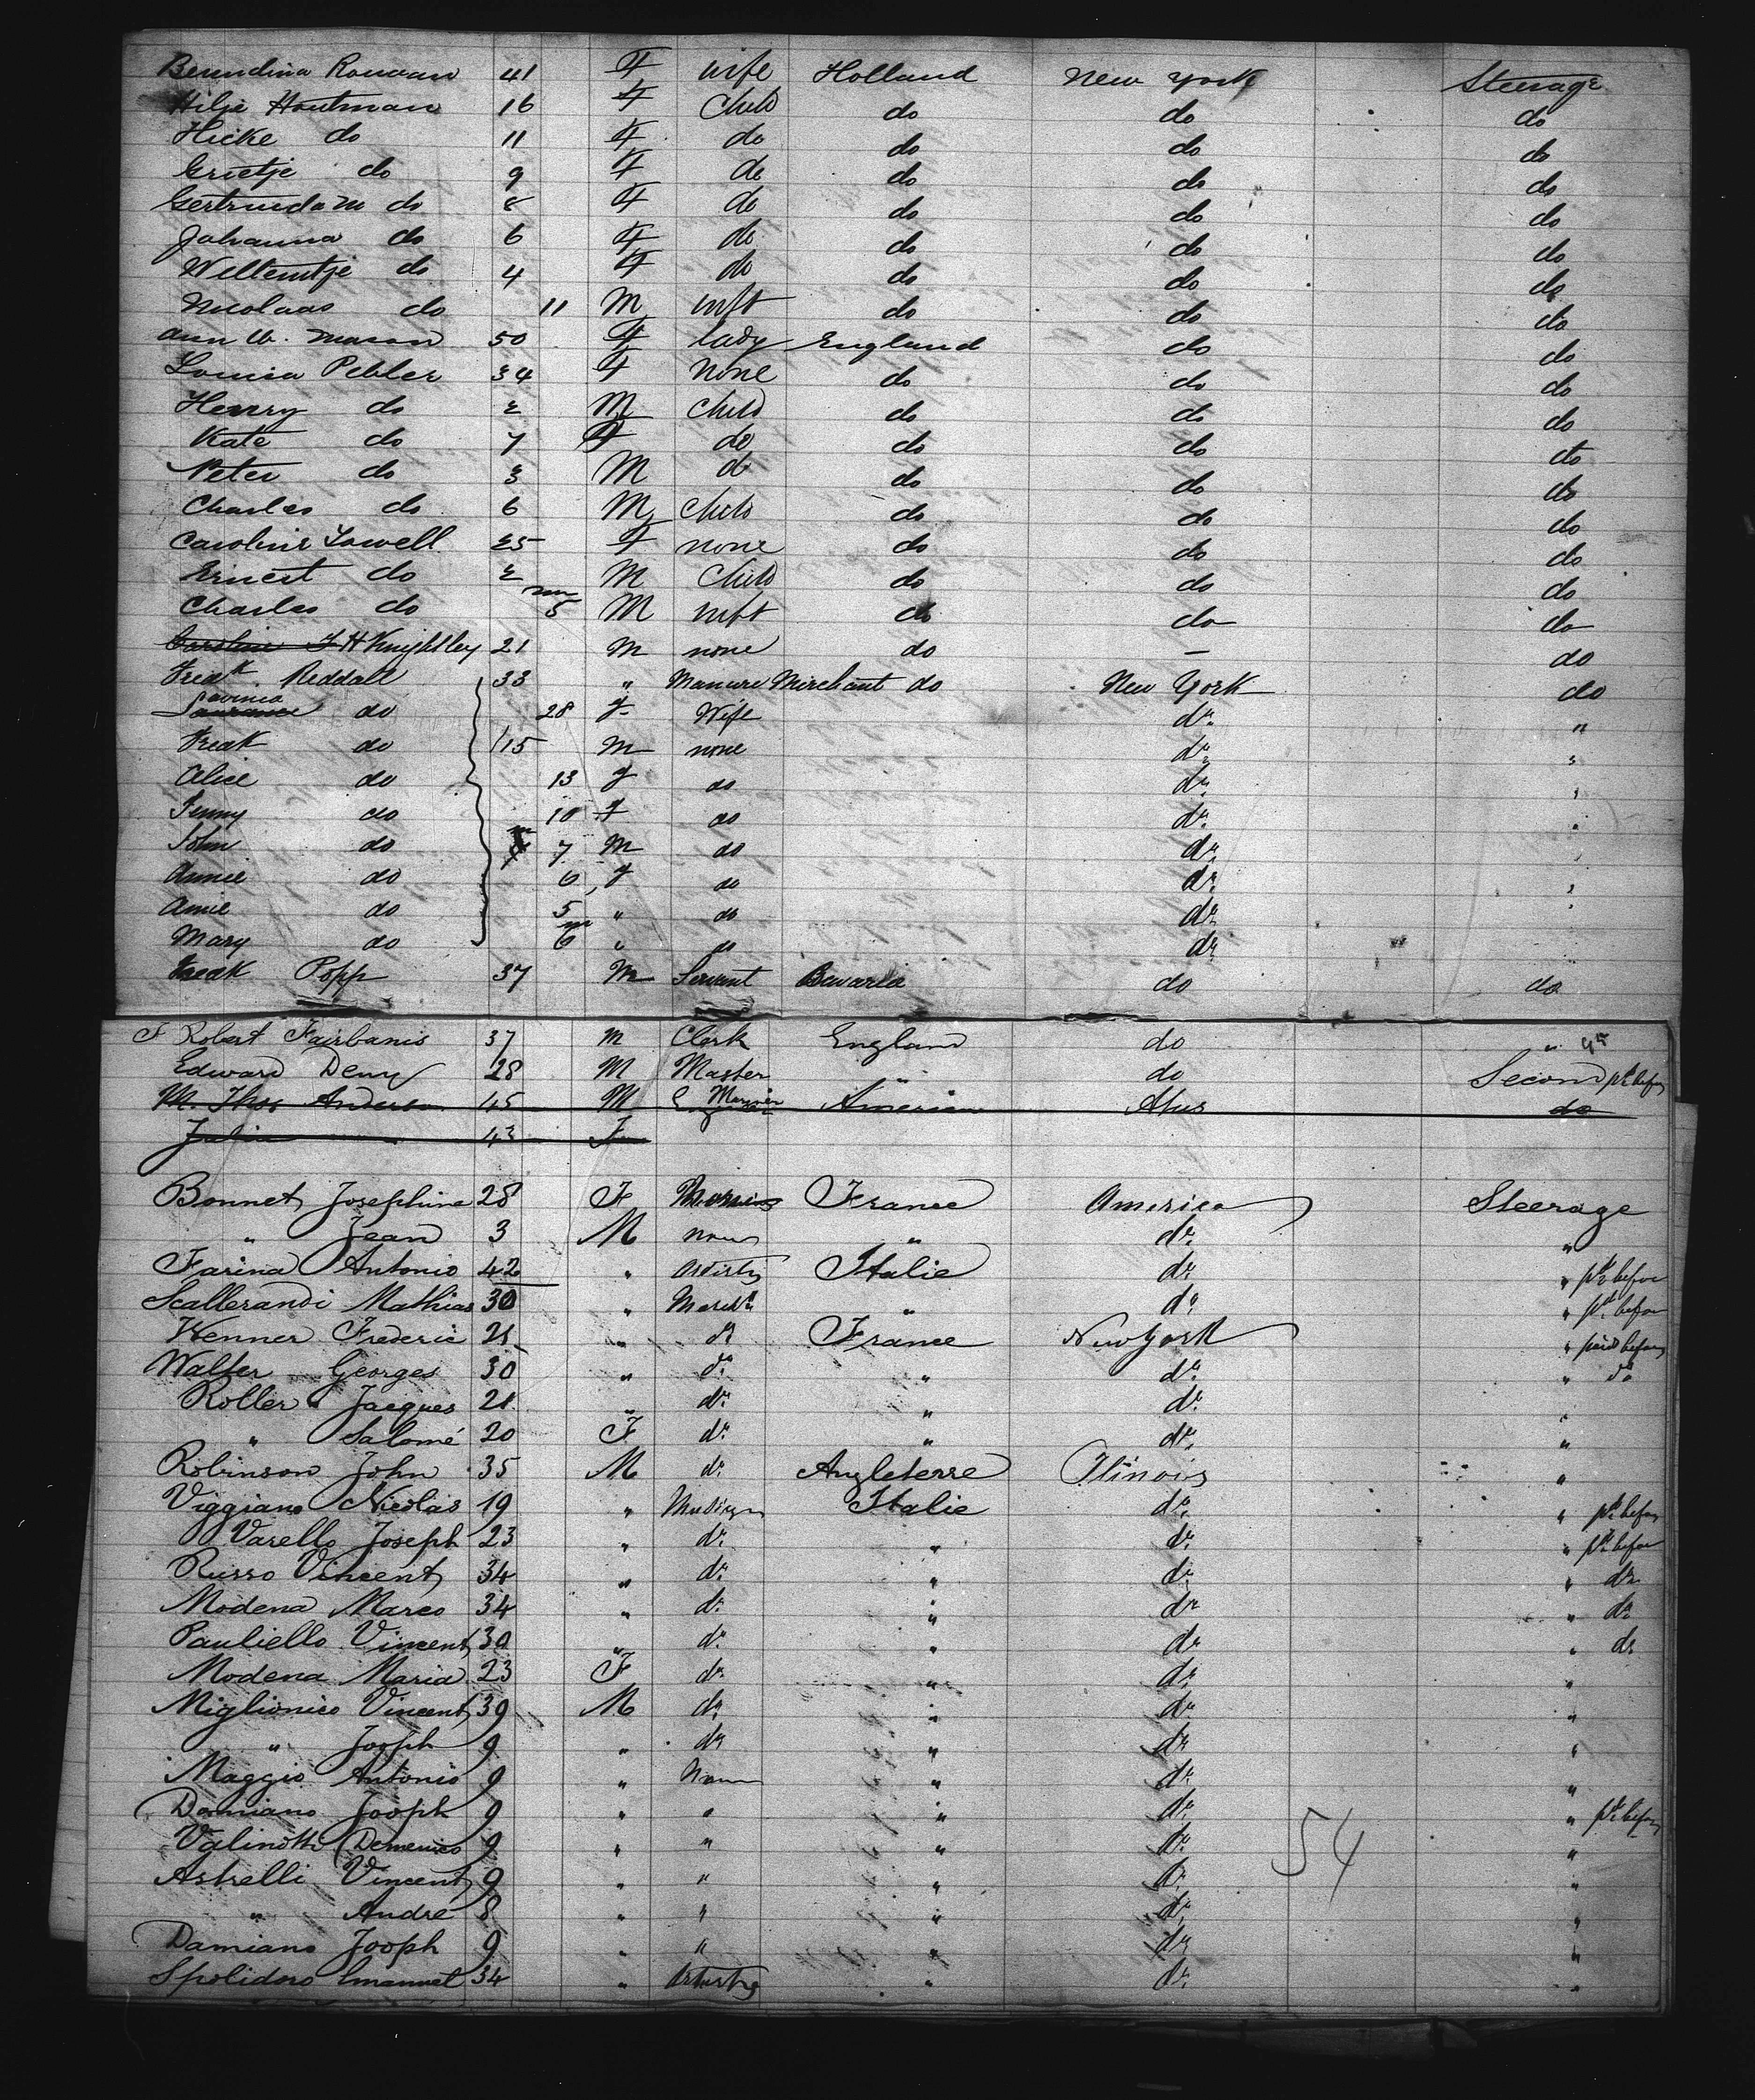 Berendina Rouwan 41 F wife Holland New York Steerage
Hilje Houtman 16 F Child do do do
Hicke do 11 F do do do do
Grietje do 9 F do do do do
Gertruida M do 8 F do do do do
Johanna do 6 F do do do do
Willemtje do 4 F do do do do
Nicolaas do 11 M inft do do do
Ann W. Mason 50 F lady England do do
Louisa Pebler 34 F none do do do
Henry do 2 M child do do do
Kate do 7 F do do do do
Peter do 3 M do do do do
Charles do 6 M child do do do
Caroline Lowell 25 F none do do do
Ernest do 2 M Child do do do
Charles do m 5 M inft do do do
Caroline J H Knightley 21 M none do — do
Fredk. Reddall 33 " Manure Merchant do New York do
Lavinia do 28 f Wife do "
Fredk do 15 M none do "
Alice do 13 f do do "
Fenny do 10 f do do "
John do 7 M do do "
Annie do 6 f do do "
Amie do 5 " do do "
Mary do m 6 " do do
Fredk Popp 37 M Servant Bavaria do do
F Robert Fairbanis 37 M Clerk England do "
Edward Deny 28 M Master " do Second pd before
M. Thos Anderson 45 M Engineer American do
Julia 43 F
Bonnet Josephine 28 F France America Steerage
" Jean 3 M none " do "
Farina Antonio 42 " Artist Italie do " pd before
Scallerandi Mathias 30 " March " do " pd before
Wenner Frederic 21 " do France New York " paid before
Walter Georges 30 " do " do " do
Roller Jacques 21 " do " do "
" Salomé 20 F do " do "
Robinson John 35 M do Angleterre Ilinois "
Viggiano Nicolas 19 " Italie do " pd before
Varello Joseph 23 " do " do " pd before
Russo Vincent 34 " do " do " do
Modena Marco 34 " do " do " do
Pauliello Vincent 30 " do " do " do
Modena Maria 23 F do " do "
Miglionico Vincent 39 M do " do "
" Joseph 9 " do " do "
Maggio Antonio 9 " None " do "
Damiano Joseph 9 " " " do " pd before
Valinotti Demenico 9 " " " do "
54
Astrelli Vincent 9 " " " do "
" André 8 " " " do "
Damiano Joseph 9 " " " do "
Spolidoro Emanuel 34 " " do "